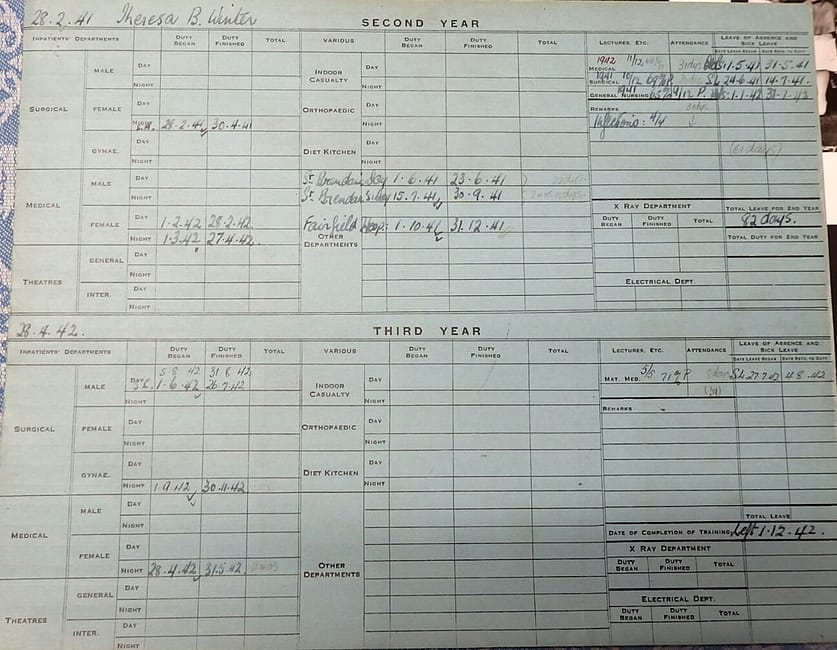 28.2.41 Theresa B. Winter SECOND YEAR
INPATIENTS' DEPARTMENTS DUTY BEGAN DUTY FINISHED TOTAL VARIOUS DUTY BEGAN DUTY FINISHED TOTAL LECTURES, ETC. ATTENDANCE LEAVE OF ABSENCE AND SICK LEAVE
DATE LEAVE BEGAN DATE RETD. TO DUTY
SURGICAL MALE DAY INDOOR CASUALTY DAY 1942 MEDICAL 11/12 31 dys 1.5.41 31.5.41
NIGHT NIGHT 1941 SURGICAL 10/12 69% P. SL 24.6.41 14.7.41
FEMALE DAY ORTHOPAEDIC DAY 1941 GENERAL NURSING 65% P. 1.1.42 31.1.42
REMARKS 31 dys
NIGHT 28.2.41 30.4.41 NIGHT 4/4
GYNAE. DAY DIET KITCHEN DAY (61 days)
NIGHT NIGHT
MEDICAL MALE DAY St. Brendan's Day 1.6.41 23.6.41
NIGHT St. Brendan's Day 15.7.41 30.9.41
X RAY DEPARTMENT TOTAL LEAVE FOR 2ND YEAR
FEMALE DAY 1.2.42 28.2.42 Fairfield Hosp. 1.10.41 31.12.41 DUTY BEGAN DUTY FINISHED TOTAL 82 days.
NIGHT 1.3.42 27.4.42. OTHER DEPARTMENTS TOTAL DUTY FOR 2ND YEAR
THEATRES GENERAL DAY
NIGHT ELECTRICAL DEPT.
INTER. DAY
NIGHT
28.4.42. THIRD YEAR
INPATIENTS' DEPARTMENTS DUTY BEGAN DUTY FINISHED TOTAL VARIOUS DUTY BEGAN DUTY FINISHED TOTAL LECTURES, ETC. ATTENDANCE LEAVE OF ABSENCE AND SICK LEAVE
DATE LEAVE BEGAN DATE RETD. TO DUTY
5.8.42 31.8.42
SURGICAL MALE DAY 1.6.42 26.7.42 INDOOR CASUALTY DAY MAT. MED. 5/5 71% P SL 27.7.42 4.8.42
NIGHT NIGHT
FEMALE DAY ORTHOPAEDIC DAY REMARKS
NIGHT NIGHT
GYNAE. DAY DIET KITCHEN DAY
NIGHT 1.9.42 30.11.42 NIGHT
MEDICAL MALE DAY TOTAL LEAVE
NIGHT DATE OF COMPLETION OF TRAINING Left 1.12.42.
FEMALE DAY X RAY DEPARTMENT
NIGHT 28.4.42 31.5.42 OTHER DEPARTMENTS DUTY BEGAN DUTY FINISHED TOTAL
THEATRES GENERAL DAY
NIGHT ELECTRICAL DEPT.
INTER. DAY DUTY BEGAN DUTY FINISHED TOTAL
NIGHT